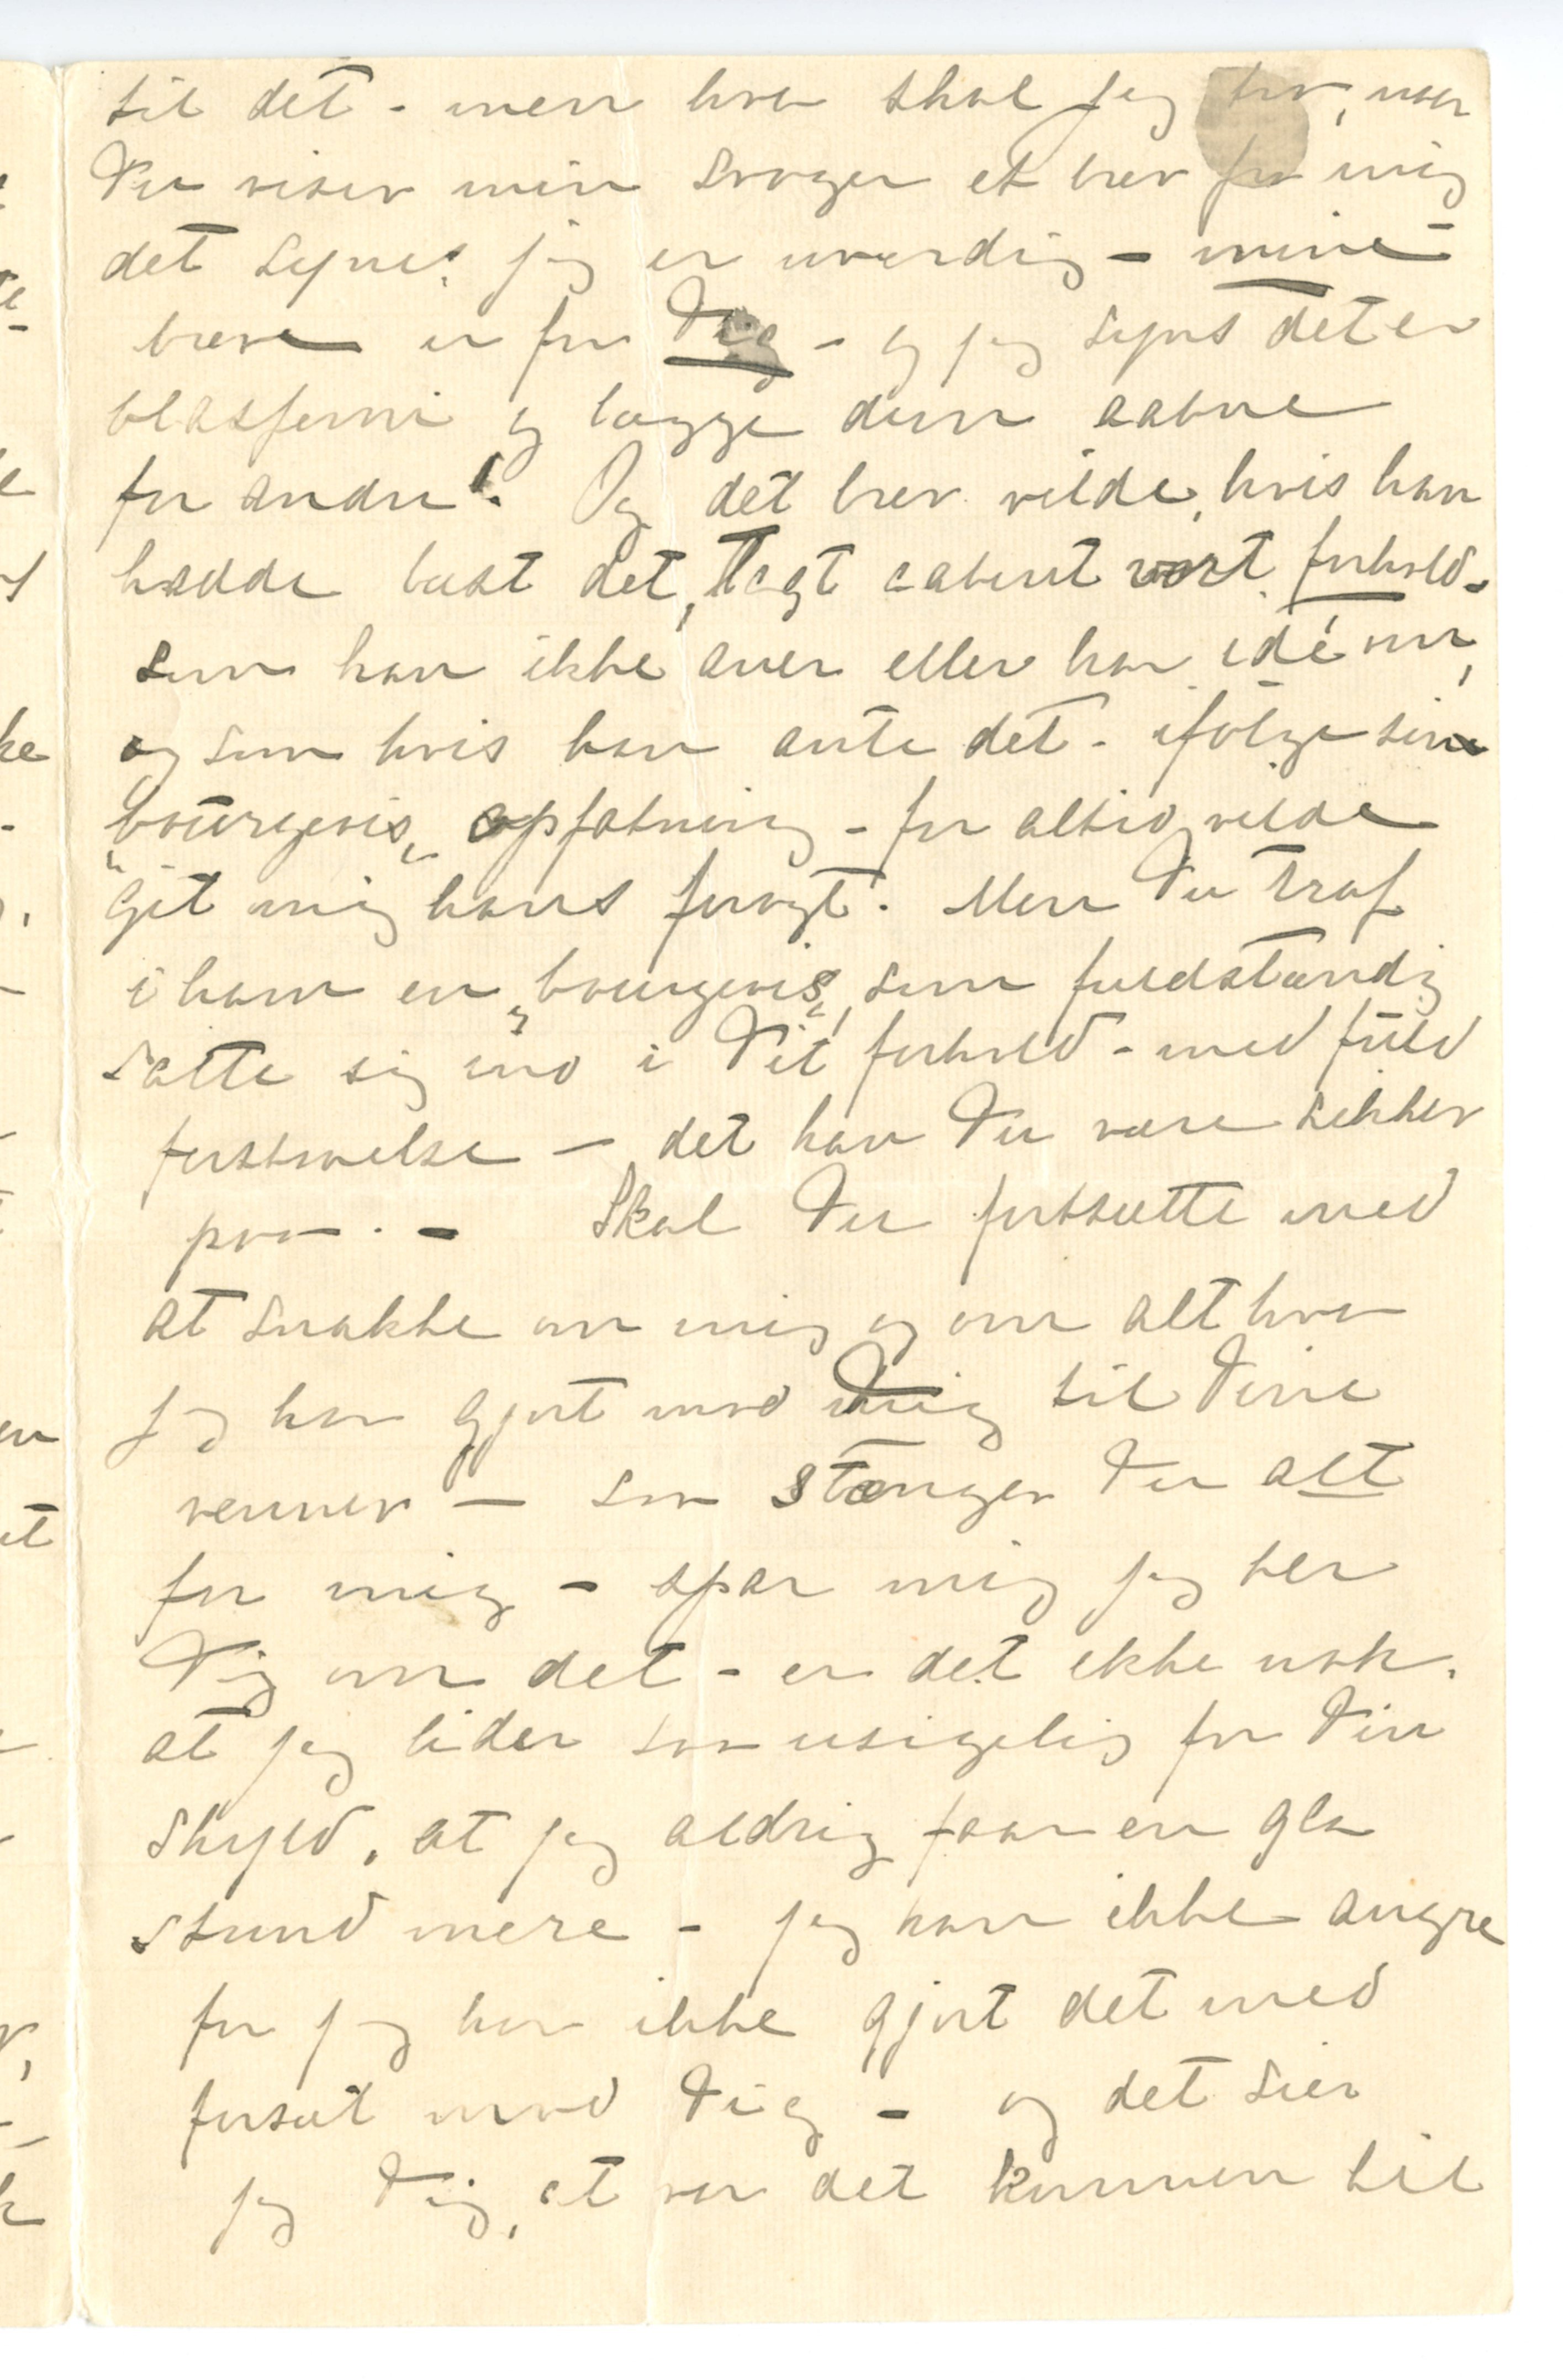 til det - men hva skal jeg tro, naar
Du viser min svoger et brev fra mig
det synes jeg er uværdig - mine
breve er for Dig - og jeg syns det er
blasfemi og lægge dem aabne
for andre! Og det brev vilde, hvis han
hadde læst det, lagt aabent vort forhold -
som han ikke aner eller har idé om,
og som hvis han ante det - ifølge sin
„bourgeois“ opfatning - for altid vilde
git mig hans foragt. Men Du traf
i ham en „bourgeois“, som fuldstændig
satte sig ind i Dit forhold - med fuld
forstaaelse - det kan Du være sikker
paa. - Skal Du fortsætte med
at snakke om mig og om alt hva
jeg har gjort mod Dig til Dine
venner - saa stænger Du alt
for mig - spar mig jeg ber
Dig om det - er det ikke nok,
at jeg lider saa usigelig for Din
skyld, at jeg aldrig faar en gla
stund mere - jeg kan ikke angre
for jeg har ikke gjort det med
forsæt mod Dig - og det sier
jeg Dig, at var det kommen til